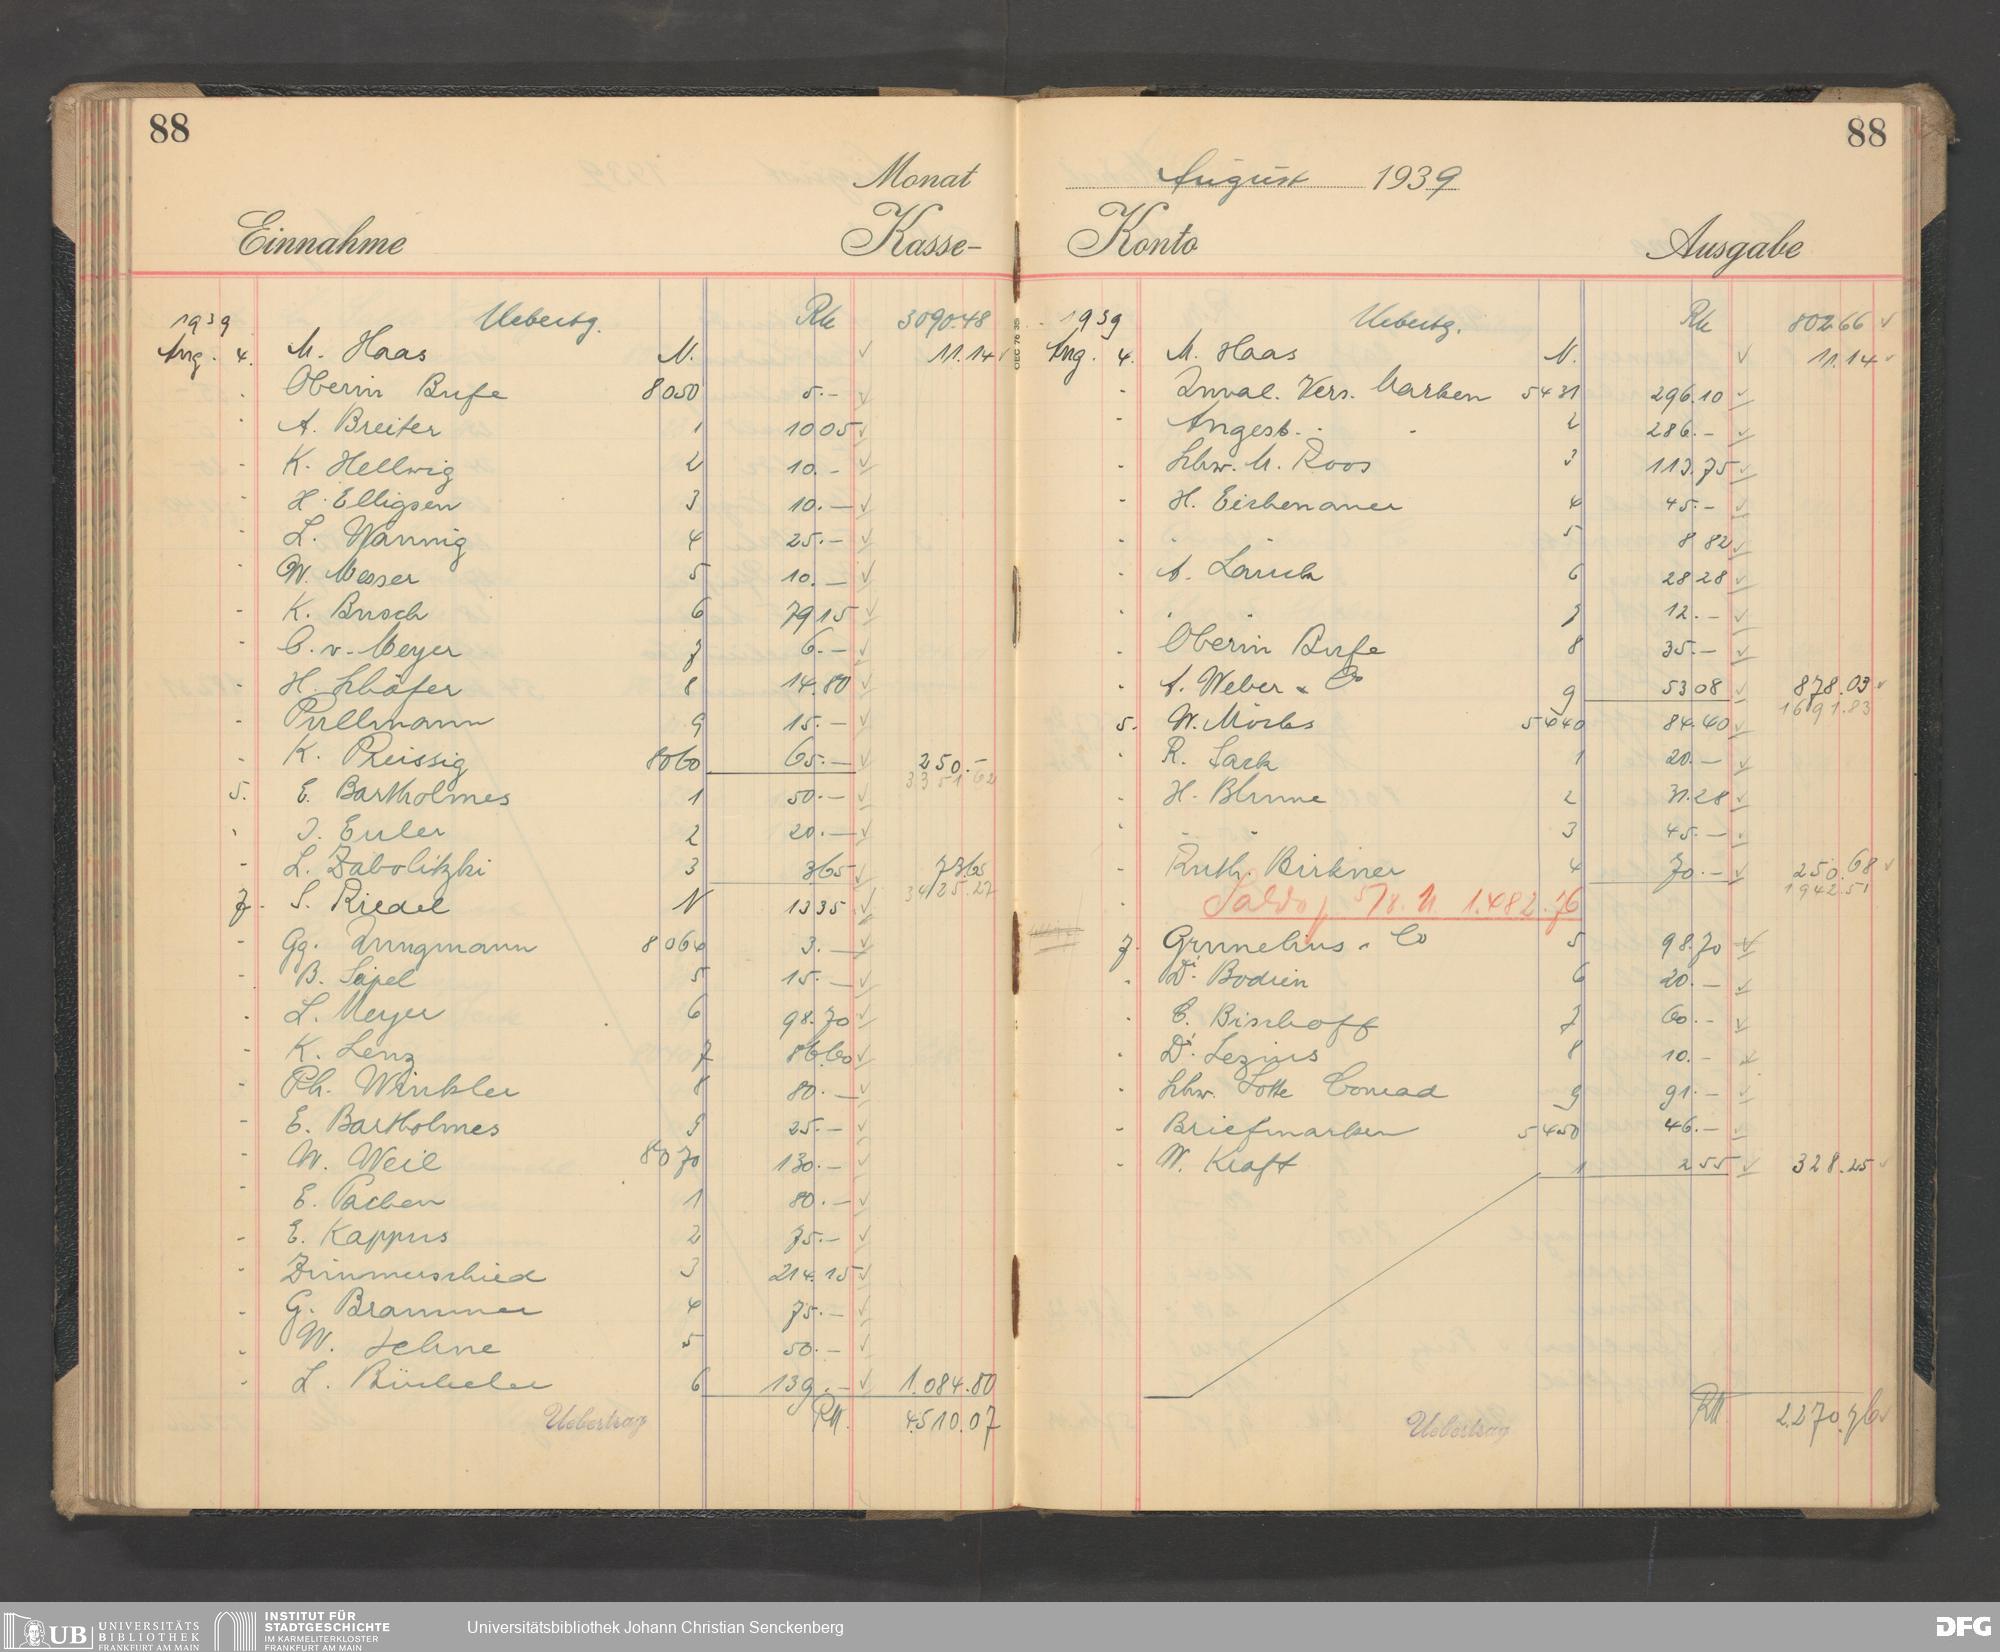 88
Monat
Einnahme Kasse-
1939 Uebertg. RM 3090.48
Aug. 4. M. Haas N. 11.14
Oberin Bufe 8050 5.-
A. Breiter 1 10 05
K. Hellwig 2 10.-
H. Elligsen 3 10.-
L. Wannig 4 25.-
W. Messer 5 10.-
K. Busch 6 79 15
C. v. Meyer 7 6.-
H. Schäfer 8 14.80
Pullmann 9 15.-
K. Reissig 8060 65.- 250.-
3351.62
5. E. Bartholmes 1 50.-
J. Euler 2 20.-
L. Zabolitzki 3 3 65 73.65
3425.27
7. S. Riedel N 13 35
Gg. Jungmann 8064 3.-
B. Seipel 5 15.-
L. Meyer 6 98.70
K. Lenz 7 86.60
Ph. Winkler 8 80.-
E. Bartholmes 9 25.-
W. Weil 8070 130.-
E. Pachen 1 80.-
E. Kappus 2 75.-
Zimmerschied 3 214.15
G. Brammer 4 75.-
W. Jehne 5 50.-
L. 6 139.- 1.084.80
Uebertrag RM. 4510.07
88
August 1939
Konto Ausgabe
1939 Uebertg. RM 802.66
Aug. 4. M. Haas N. 11.14
Inval. Vers. Marken 5431 296.10
Angest. " " 2 286.-
Schw. M. Roos 3 113.75
H. Eichenauer 4 45.-
" " 5 8 82
A. Lauck 6 28 28
" " 7 12.-
Oberin Bufe 8 35.-
A. Weber & Co 9 53 08 878.03
1691.83
5. W. Mörbs 5440 84.40
R. Sack 1 20.-
H. Blume 2 31.28
" " 3 45.-
Ruth Birkner 4 70.- 250.68
1942.51
Saldo p 5/8. M 1.482.76
7. Grunelius & Co 5 98.70
Dr. Bodien 6 20.-
C. Bischoff 7 60.-
Dr. Lezius 8 10.-
Schw. Lotte Conrad 9 91.-
Briefmarken 5450 46.-
W. Kraft 1 2 55 328.25
Uebertrag RM 2.270.76
UB UNIVERSITÄTS BIBLIOTHEK FRANKFURT AM MAIN
INSTITUT FÜR STADTGESCHICHTE IM KARMELITERKLOSTER FRANKFURT AM MAIN
Universitätsbibliothek Johann Christian Senckenberg
DFG